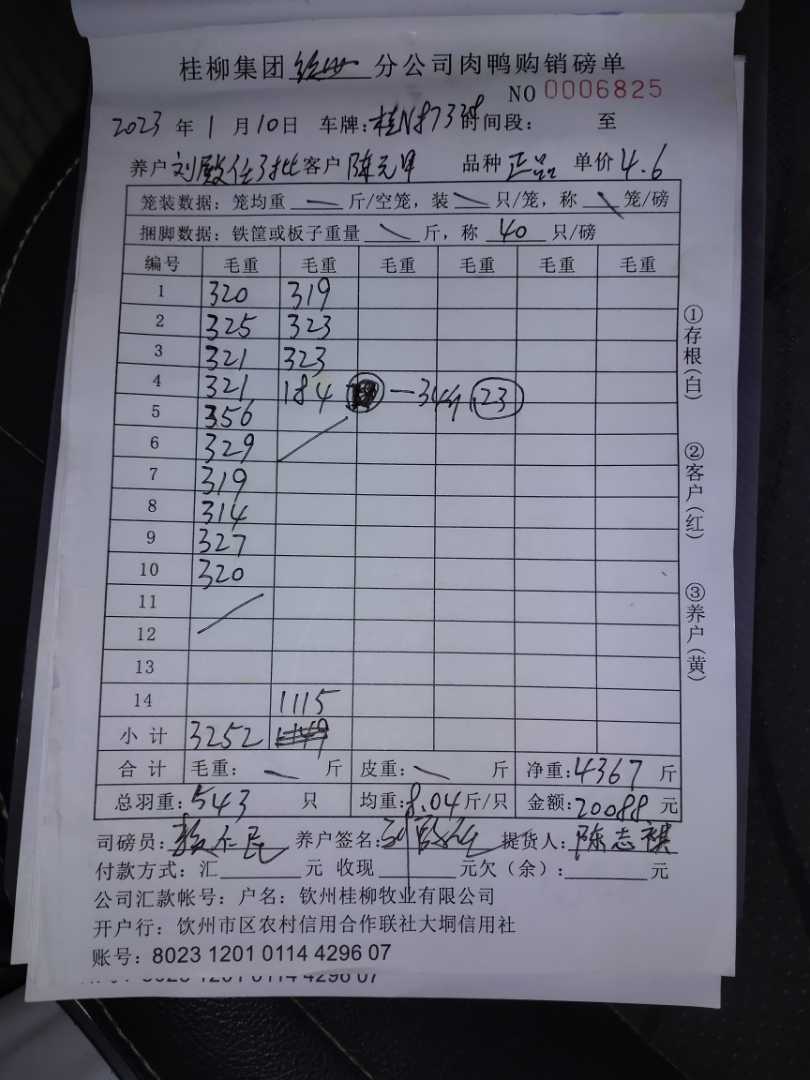 桂柳集团 分公司肉鸭购销磅单
NO 0006825
2023 年 1 月 10 日 车牌:桂N8733 时间段: 至
养户 刘殿任3批 客户 陈元 品种 正品 单价 4.6
笼装数据:笼均重 — 斤/空笼,装 \ 只/笼,称 \ 笼/磅
捆脚数据:铁筐或板子重量 \ 斤,称 40 只/磅
编号 毛重 毛重 毛重 毛重 毛重 毛重
1 320 319
2 325 323
3 321 323
4 321 184 —34斤 23
5 356
6 329
7 319
8 314
9 327
10 320
11
12
13
14 1115
小计 3252 1149
合计 毛重: — 斤 皮重: \ 斤 净重:4367 斤
总羽重:543 只 均重:8.04 斤/只 金额:20088 元
司磅员: 养户签名:刘殿任 提货人:陈志祺
付款方式:汇 元 收现 元欠(余): 元
公司汇款帐号:户名:钦州桂柳牧业有限公司
开户行:饮州市区农村信用合作联社大垌信用社
账号:8023 1201 0114 4296 07
①存根(白)
②客户(红)
③养户(黄)